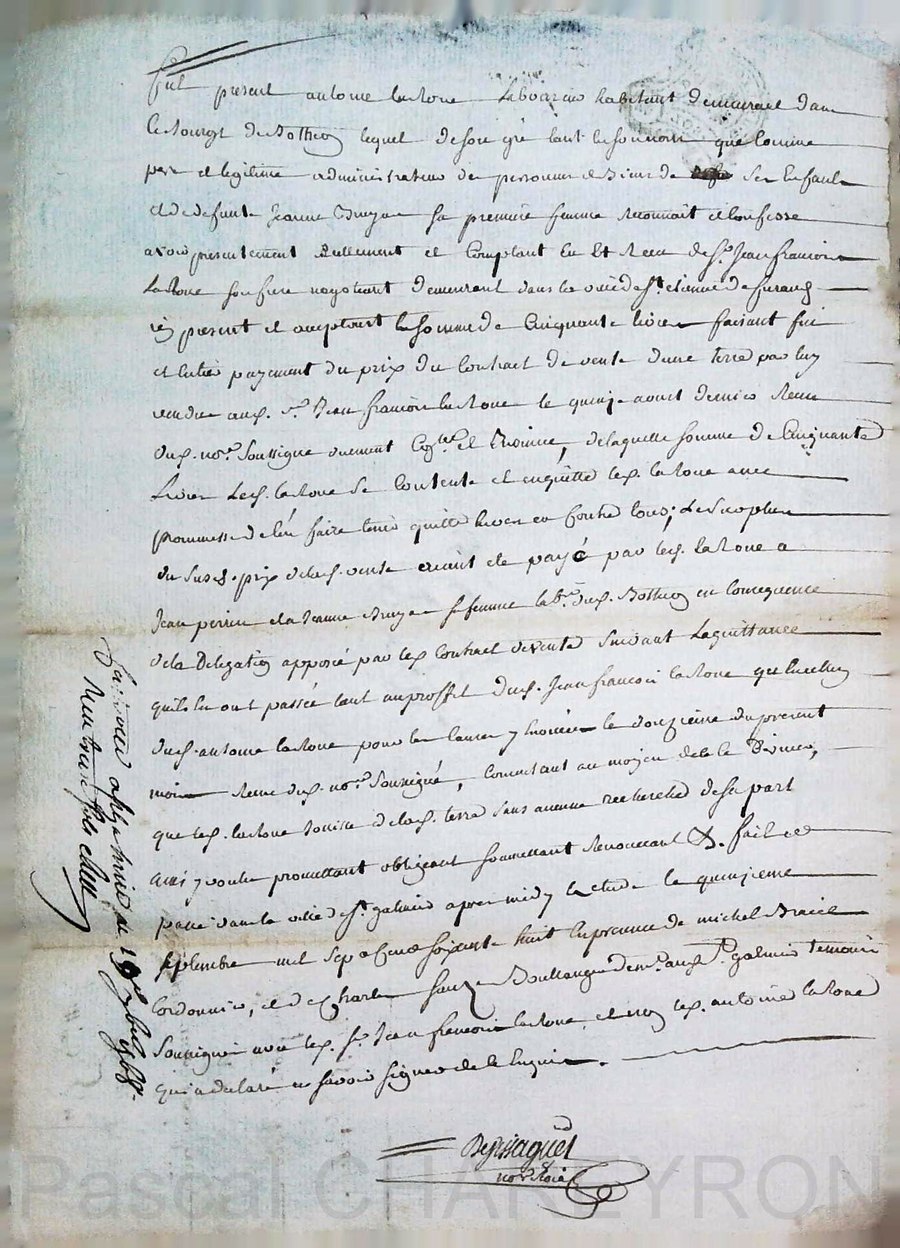 Fut present antoine laRoue Laboureur habitant demeurant dans
le bourg de Botheon lequel de son gré tant en son nom que comme
pere et legitime administrateur des personnes et biens de ses Enfants
et de defunte Jeanne Bruyas sa premiere femme reconnait et confesse
avoir presentement reellement et comptant eu et Receu de sr. Jean francois
LaRoue son frere negotiant demeurant dans la ville de st. etienne de furans
icy present et acceptant la somme de Cinquante livres faisant fin
et entier payement du prix du contract de vente d'une terre par luy
vendue aud. sr. Jean francois la Roue le quinze aoust dernier Receu
dud. nore. soussigné duement et , de laquelle somme de Cinquante
Livres led. laRoue se contente et en quitte led. laRoue avec
promesse de l'en faire tenir quitte envers et contre tous; Le surplus
du susd. prix de lad. vente ayant été payé par led. laRoue a
Jean perrin et a Jeanne Bruyas sa femme lab. dud. Bothеon en consequence
de la Delegation apposée par led. contract de vente suivant La quittance
qu'ils en ont passée tant au proffit dud. Jean francois la Roue que de celluy
dud. antoine laRoue pour les causes y enoncées le douzieme du present
mois Receue dud. nore. soussigné, consentant au moyen de ce le
que led. laRoue Jouisse de lad. terre sans aucune recherche de sa part
ainsi voulu promettant obligeant soumettant renoncant &. fait et
passé dans la ville de st. galmier apres midy Etude le quinzieme
septembre mil sept cent soixante huit en presence de michel
Cordonnier, et de Charles Boullanger demt. aud. st. galmier temoins
soussignés avec led. sr. Jean francois laRoue, et non led. antoine la Roue
qui a declaré ne savoir signer de ce Enquis.
Bessaguet
nore Roial
a st. galmier le 19 7bre 1768.
Receu treize sols
Pascal CHAREYRON